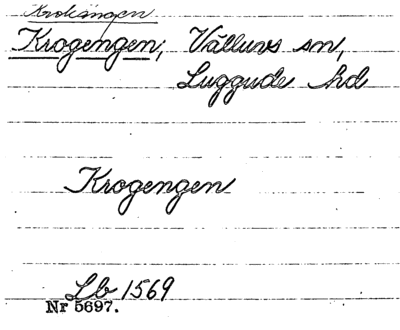 Krokängen
Krogengen; Välluvs sn,
Luggude hd
Krogengen
Lb 1569
Nr 5697.